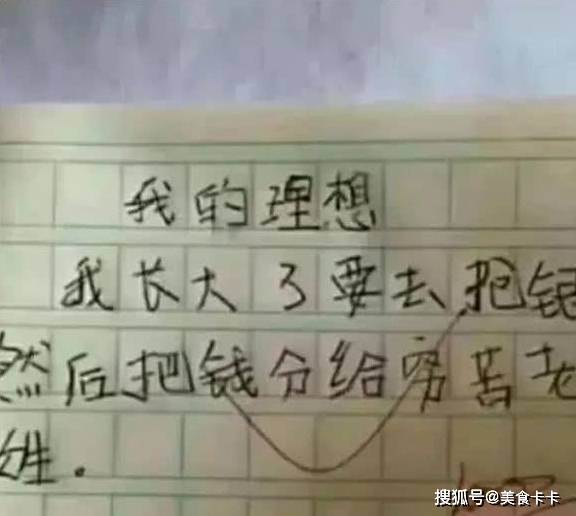 我的理想
我长大了要去抢银
然后把钱分给穷苦老
姓。
搜狐号@美食卡卡